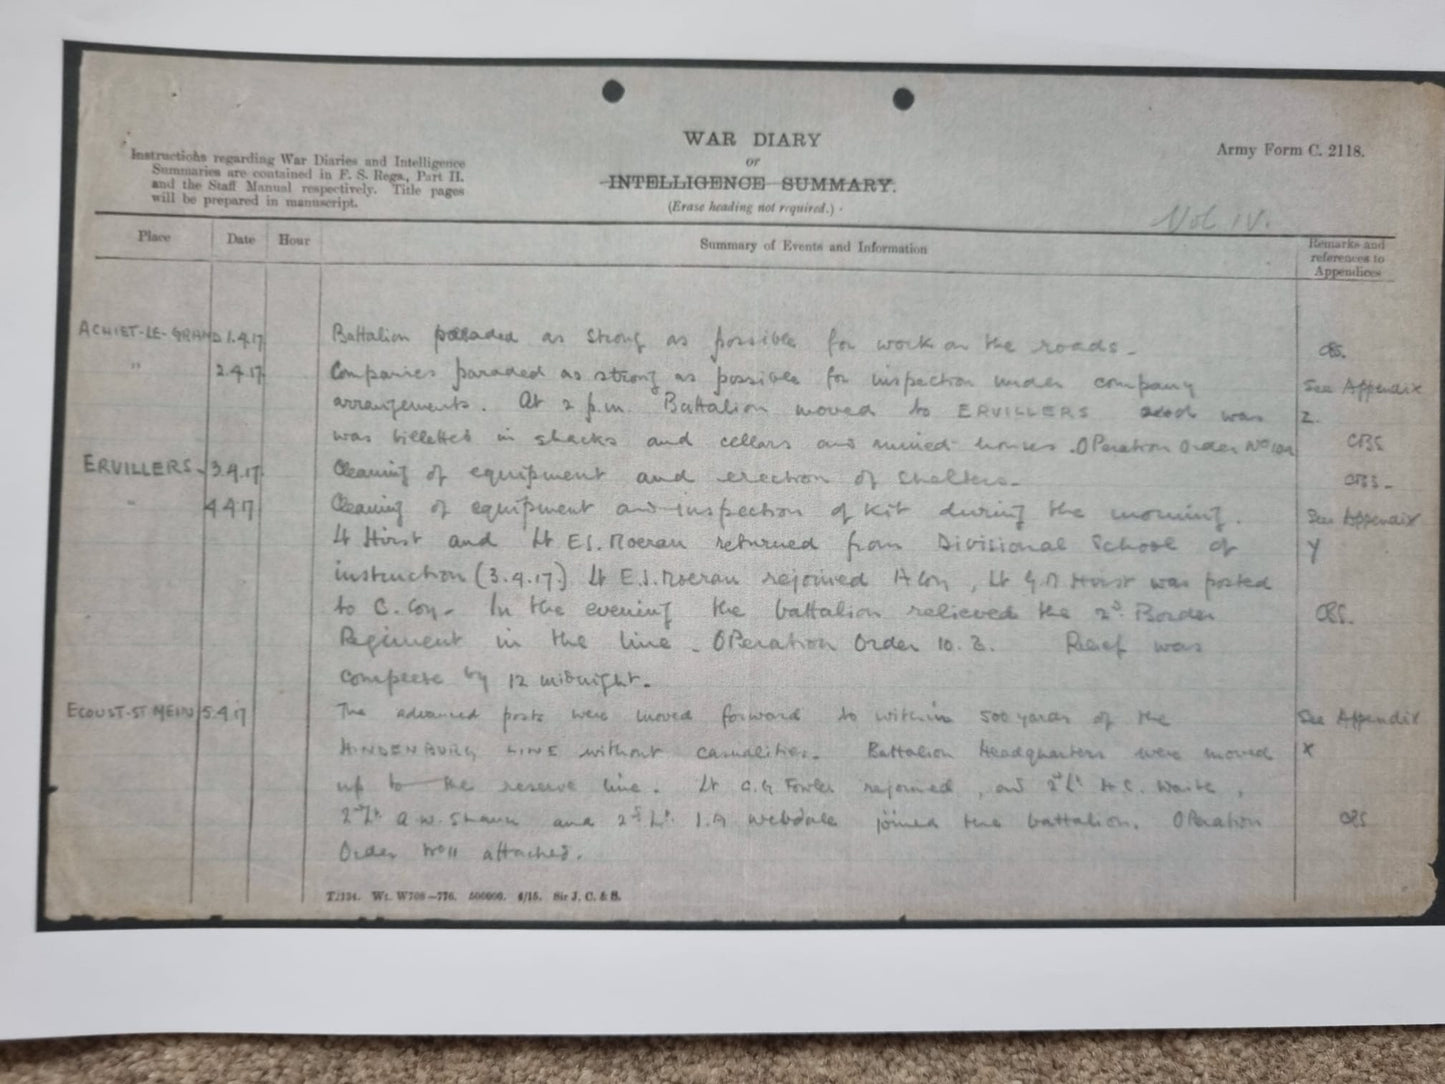 WAR DIARY
or
INTELLIGENCE SUMMARY.
(Erase heading not required.)
Army Form C. 2118.
Instructions regarding War Diaries and Intelligence
Summaries are contained in F. S. Regs., Part II.
and the Staff Manual respectively. Title pages
will be prepared in manuscript.
Vol IV.
Place Date Hour Summary of Events and Information Remarks and
references to
Appendices
ACHIET-LE-GRAND 1.4.17 Battalion paraded as strong as possible for work on the roads.
" 2.4.17 Companies paraded as strong as possible for inspection under company See Appendix
arrangements. At 2 p.m. Battalion moved to ERVILLERS and was Z.
was billetted in shacks and cellars and ruined houses. Operation Order No
ERVILLERS. 3.4.17 Cleaning of equipment and erection of shelters.
" 4.4.17 Cleaning of equipment and inspection of kit during the morning. See Appendix
Lt Hirst and Lt E.S. Moeran returned from Divisional School of Y
instruction (3.4.17). Lt E.S. Moeran rejoined A Coy, Lt Hirst was posted
to C. Coy. In the evening the battalion relieved the 2d. Border
Regiment in the line. Operation Order 10. Relief was
complete by 12 midnight.
ECOUST-ST MEIN 5.4.17 The advanced posts were moved forward to within 500 yards of the See Appendix
HINDENBURG LINE without casualities. Battalion Headquarters were moved X
up to the reserve line. Lt C.G Fowler rejoined, and 2d Lt H.C. Waite,
2d Lt. A.W. and 2d Lt. I.A Webdale joined the battalion. Operation
Order No 11 attached.
T2134. Wt. W708—776. 500000. 4/15. Sir J. C. & S.